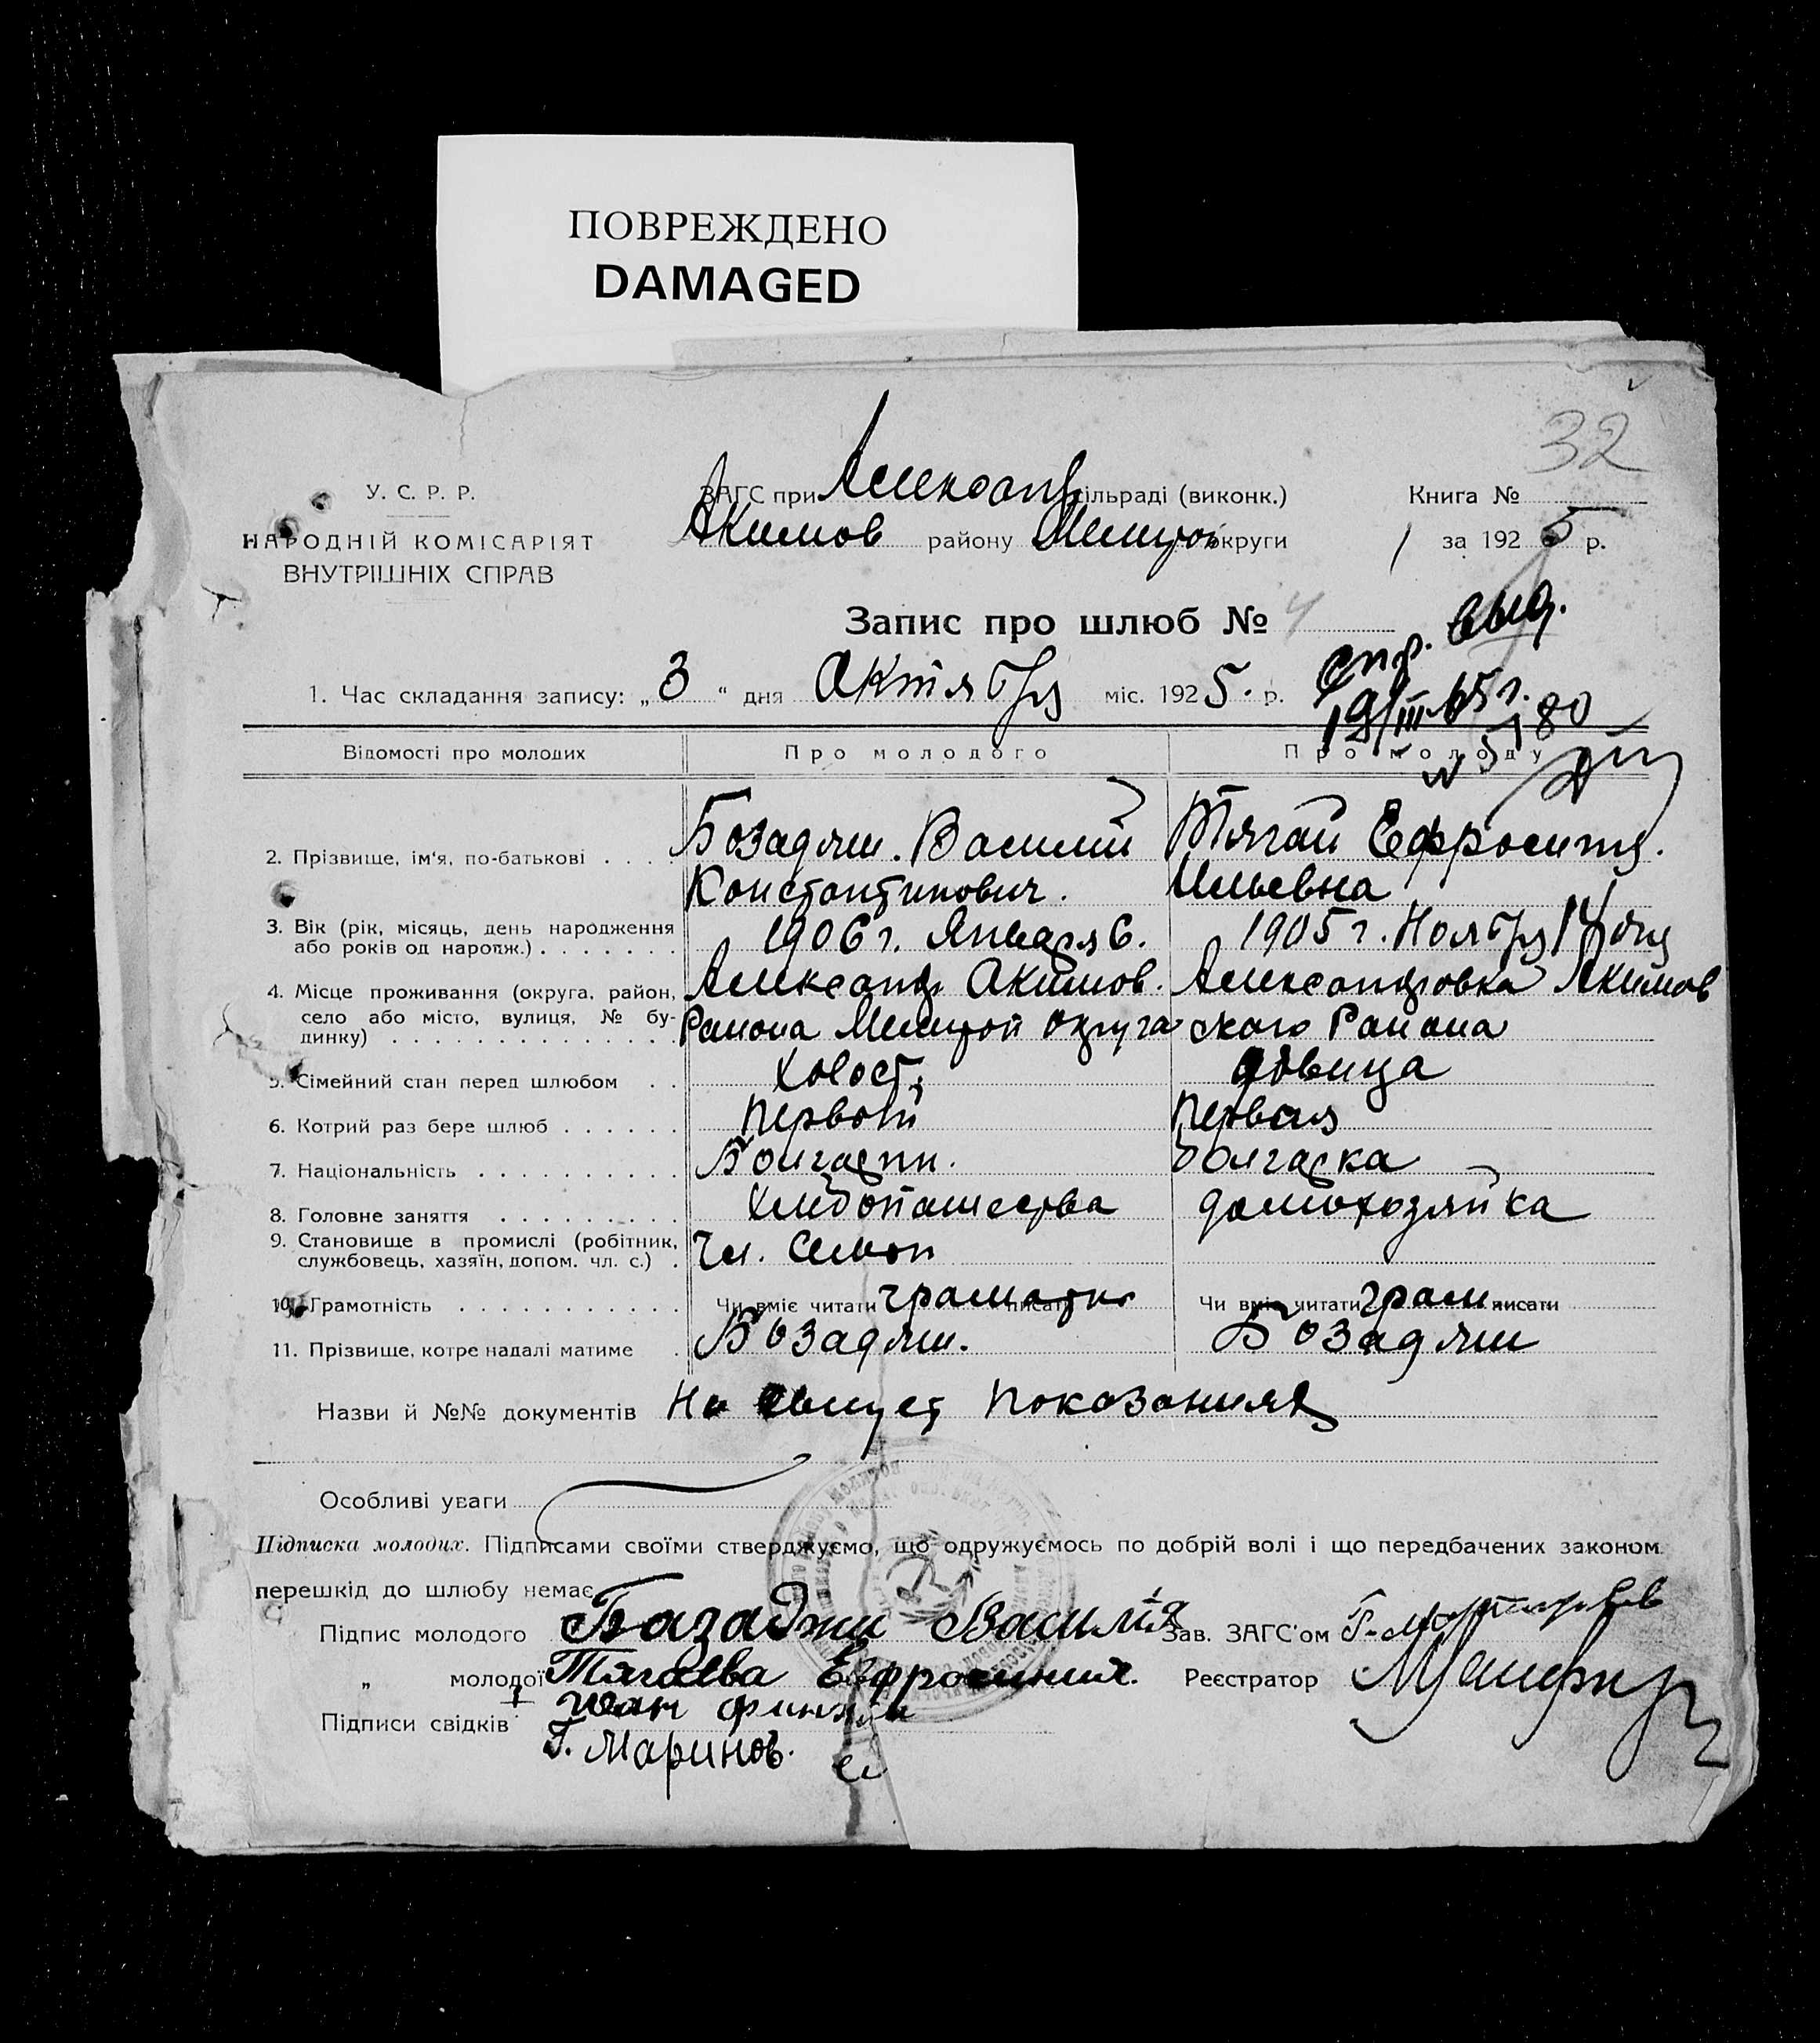 ПОВРЕЖДЕНО
DAMAGED
32
У. С. Р. Р.
НАРОДНІЙ КОМІСАРІЯТ
ВНУТРІШНІХ СПРАВ
ЗАГС при Александр сільраді (виконк.)
Акимов району Мелитоп округи
Книга №
1 за 1925 р.
Запис про шлюб № 4
спр. выд.
19/III-65 г.
1. Час складання запису: „3“ дня Октября міс. 1925. р.
Відомості про молодих Про молодого Про молоду
2. Прізвище, ім'я, по-батькові . . . . Бозаджи. Василий Тягай Ефросиния.
Константинович. Ильевна
3. Вік (рік, місяць, день народження або років од народж.) . . . . . . . 1906 г. Января 6. 1905 г. Ноября 14 дня
4. Місце проживання (округа, район, село або місто, вулиця, № будинку) . . . . . . . . . . . . . Александр Акимов. Александровка Акимов
Района Мелитоп округа ского Района
5. Сімейний стан перед шлюбом . . Холост девица
6. Котрий раз бере шлюб . . . . . . Первой Первая
7. Національність . . . . . . . . . . Болгарин. Болгарка
8. Головне заняття . . . . . . . . . Хлебопашества домохозяйка
9. Становище в промислі (робітник, службовець, хазяїн, допом. чл. с.) . Чл. Семьи
10. Грамотність . . . . . . . . . . . Чи вміє читати грамотн писати Чи вміє читати грам писати
11. Прізвище, котре надалі матиме . Бозаджи. Бозаджи
Назви й №№ документів На показаниях
Особливі уваги
Підписка молодих. Підписами своїми стверджуємо, що одружуємось по добрій волі і що передбачених законом
перешкід до шлюбу немає
Підпис молодого Базаджи Василия Зав. ЗАГС'ом
„ молодої Тягаева Ефросиния. Реєстратор
Підписи свідків Иван
Г. Маринов.